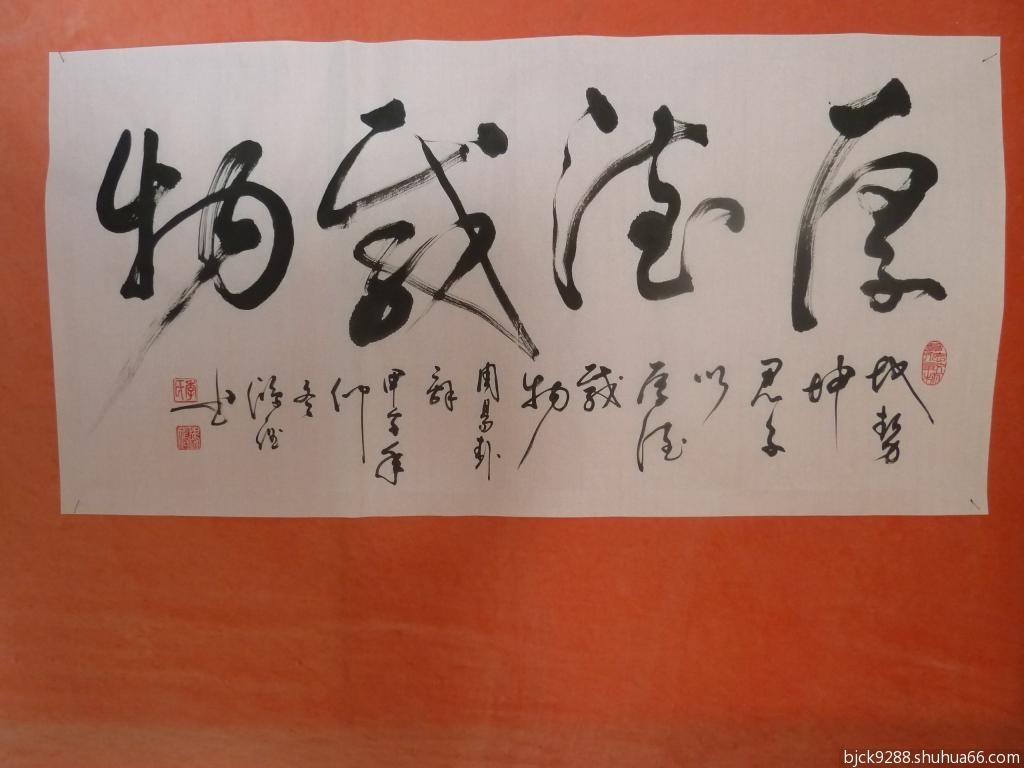 厚德載物
地勢
坤
君子
以
厚德
載
物
周易卦
辭
甲午年
仲
冬
書
bjck9288.shuhua66.com